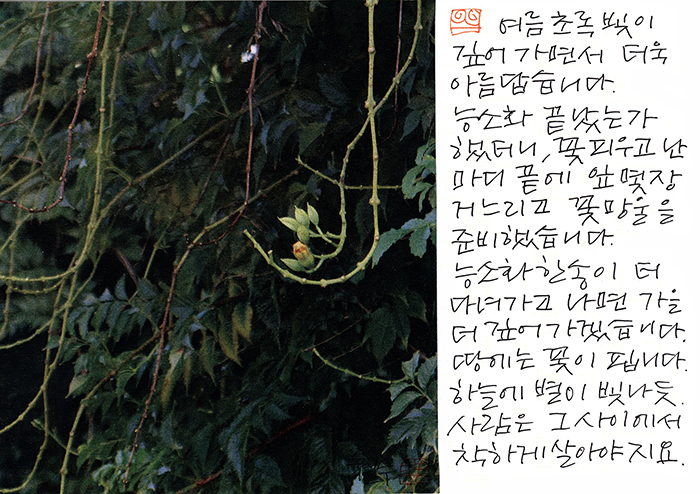 여름 초록 빛이
깊어 가면서 더욱
아름답습니다.
능소화 끝났는가
했더니, 꽃피우고 난
마디 끝에 잎 몇장
거느리고 꽃망울을
준비했습니다.
능소화 한송이 더
다녀가고 나면 가을
더 깊어가겠습니다.
땅에는 꽃이 핍니다.
하늘에 별이 빛나듯.
사람은 그 사이에서
착하게 살아야지요.